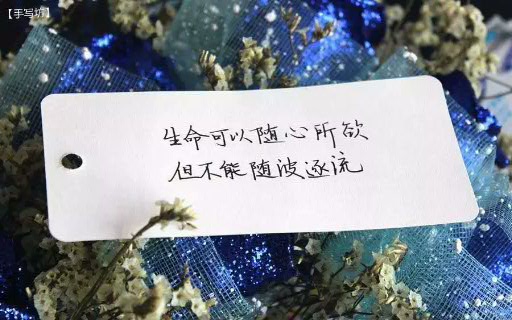 【手写坊】
生命可以随心所欲
但不能随波逐流